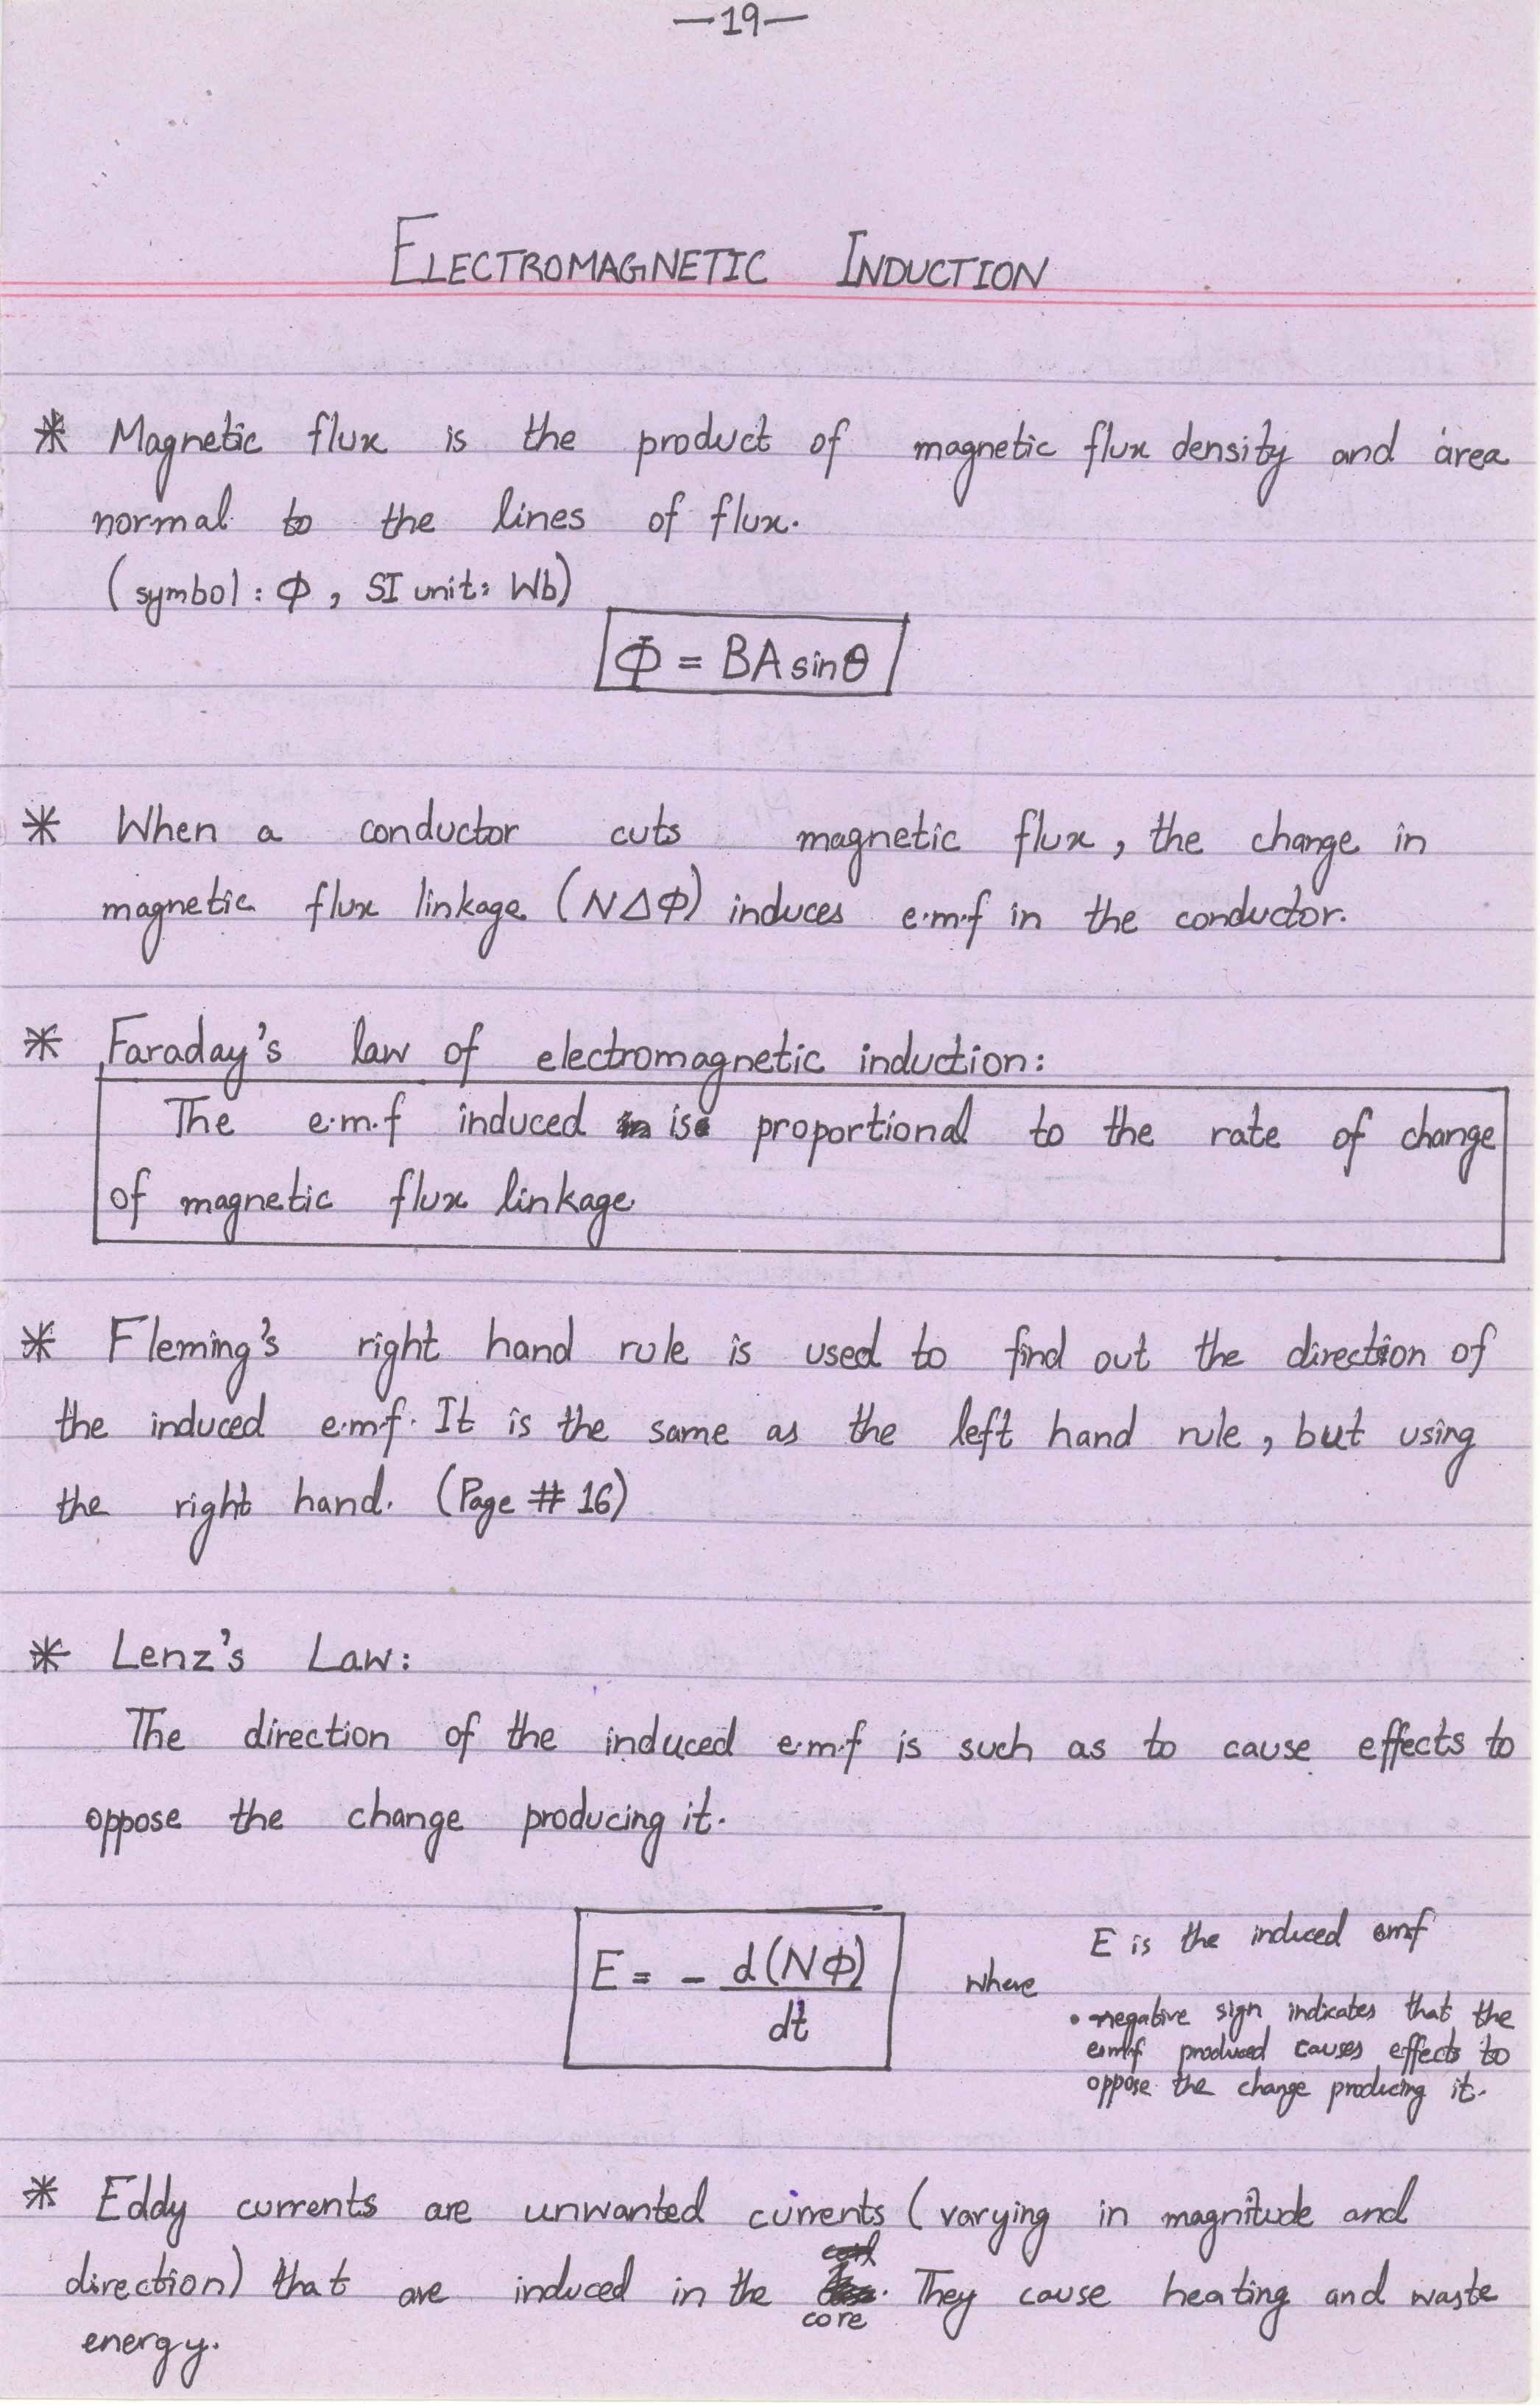 —19—
ELECTROMAGNETIC INDUCTION
* Magnetic flux is the product of magnetic flux density and area
normal to the lines of flux.
(symbol: Φ, SI unit: Wb)
Φ = BA sinθ
* When a conductor cuts magnetic flux, the change in
magnetic flux linkage (NΔΦ) induces e.m.f in the conductor.
* Faraday's law of electromagnetic induction:
The e.m.f induced is proportional to the rate of change
of magnetic flux linkage
* Fleming's right hand rule is used to find out the direction of
the induced e.m.f. It is the same as the left hand rule, but using
the right hand. (Page # 16)
* Lenz's Law:
The direction of the induced e.m.f is such as to cause effects to
oppose the change producing it.
E = - d(NΦ)
dt
where
E is the induced emf
• negative sign indicates that the
e.m.f produced causes effects to
oppose the change producing it.
* Eddy currents are unwanted currents (varying in magnitude and
direction) that are induced in the core. They cause heating and waste
energy.